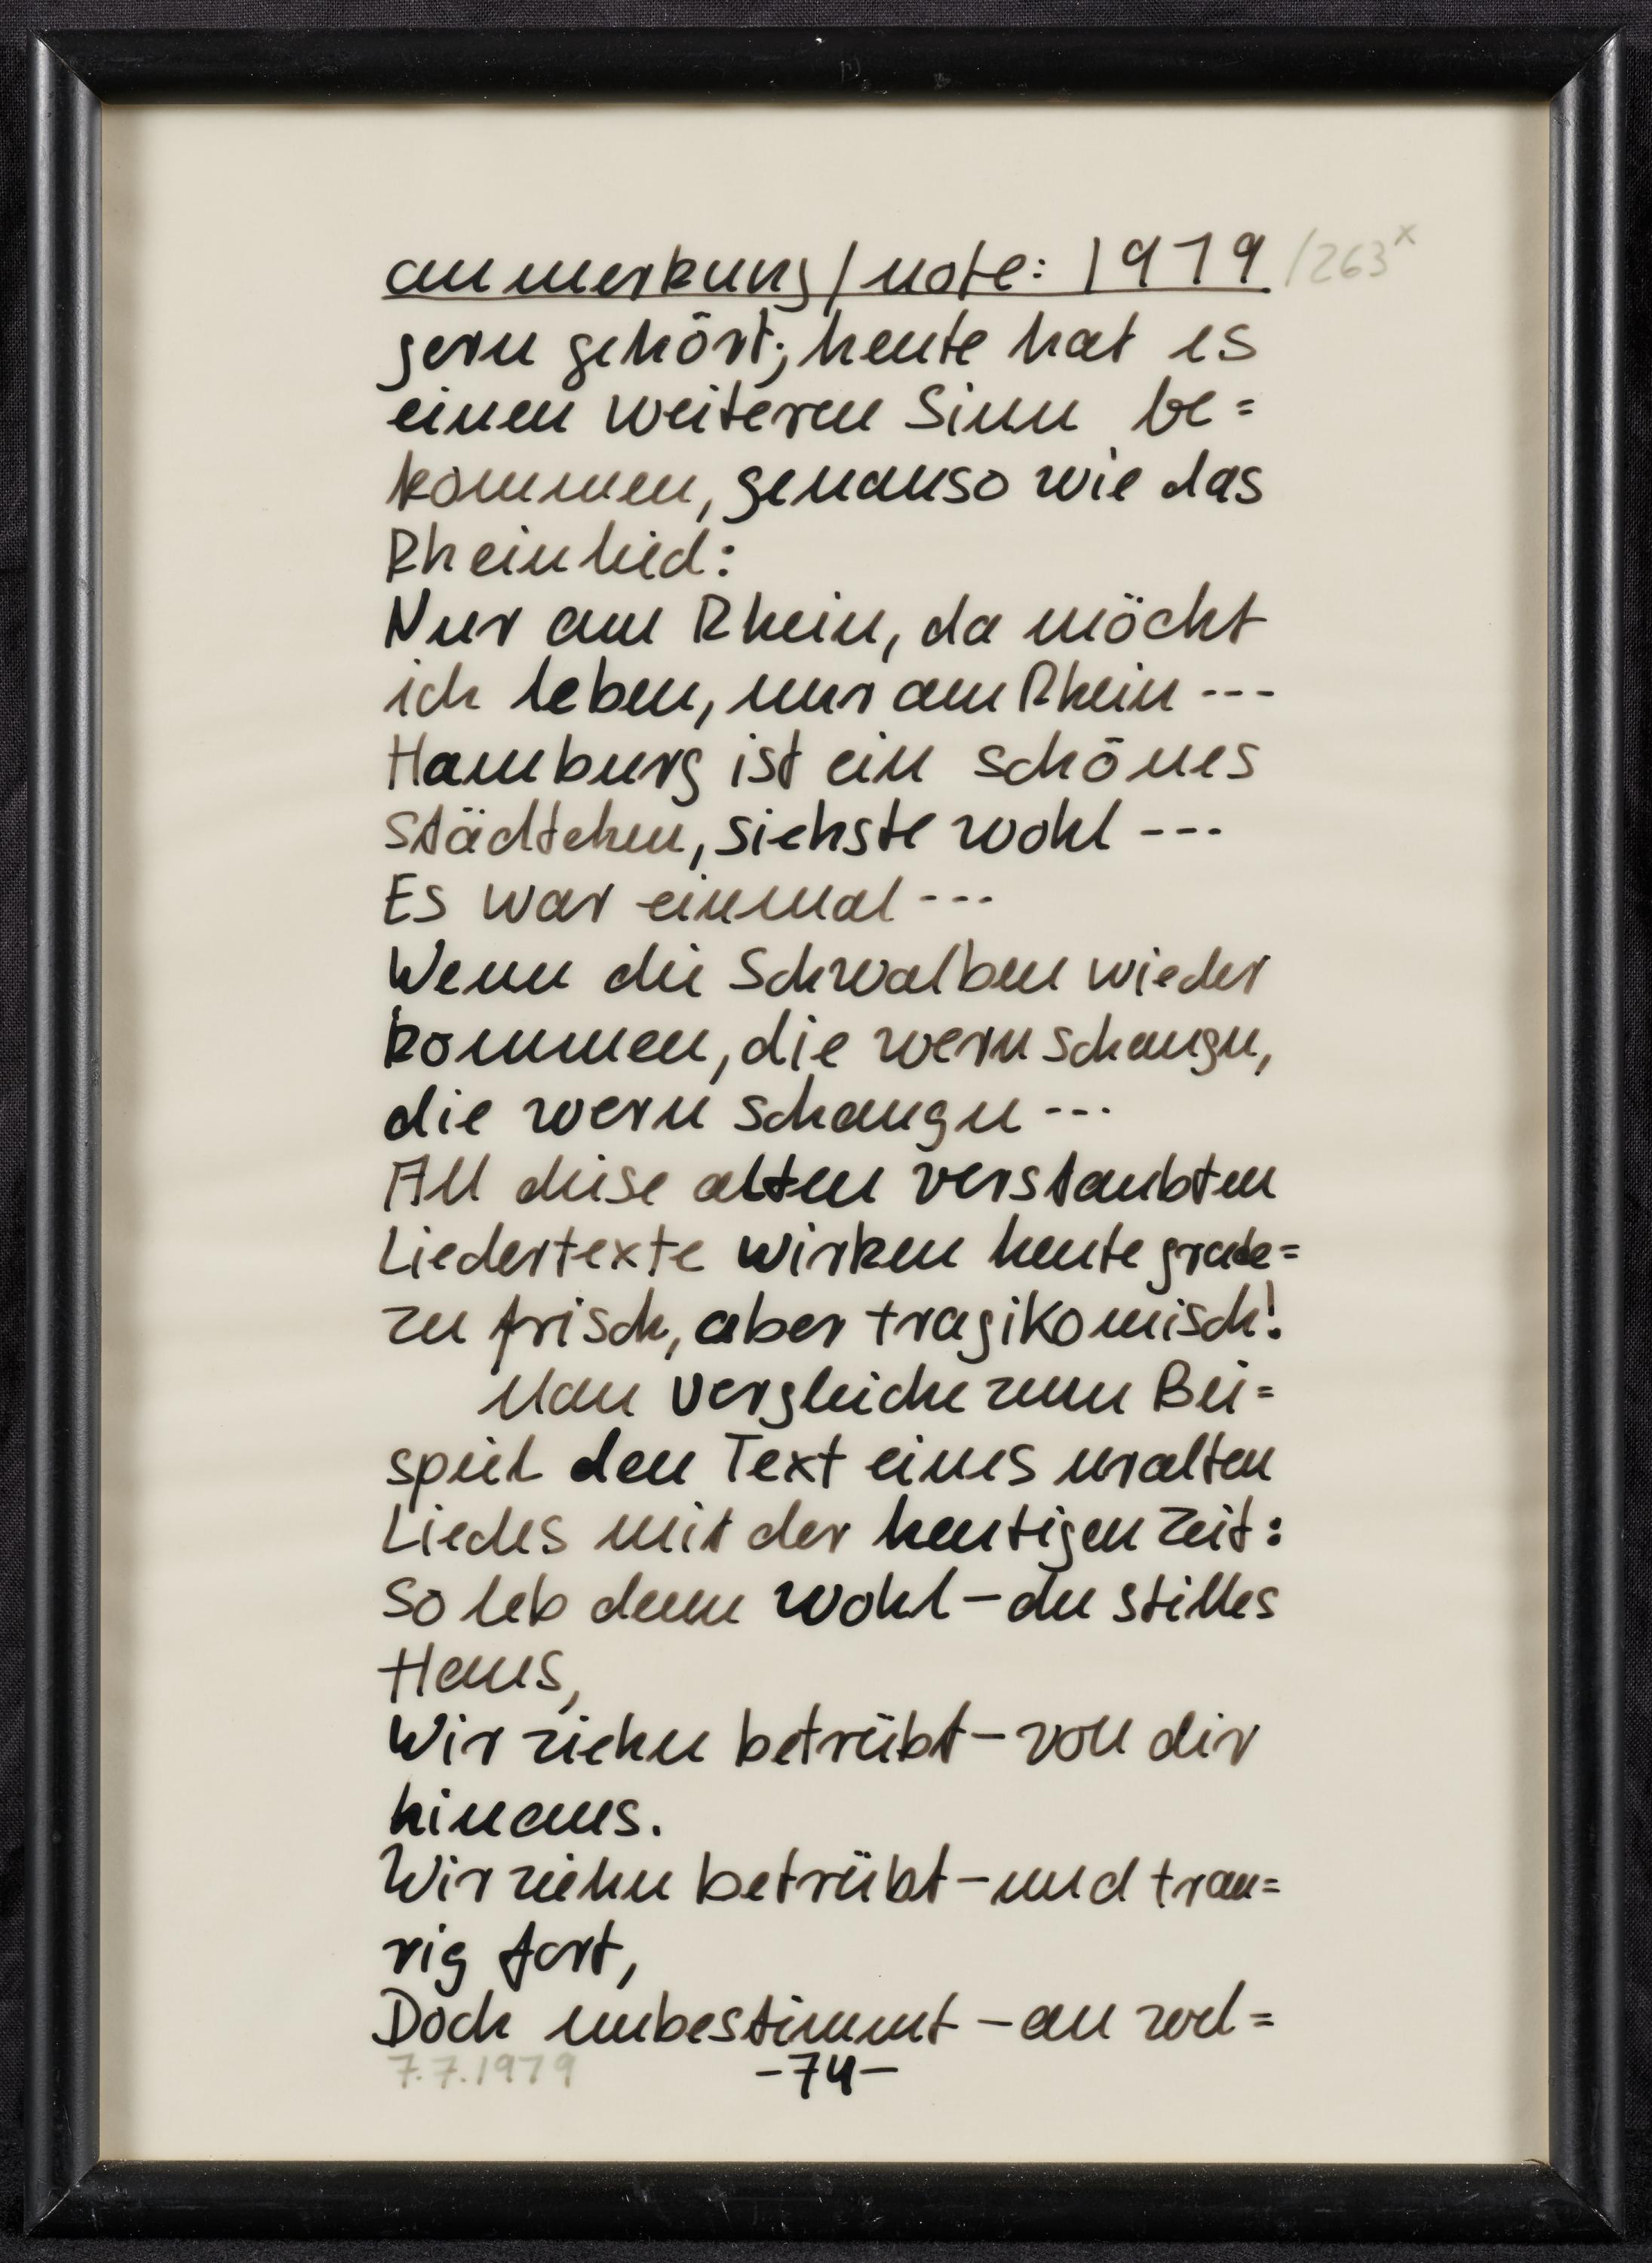 anmerkung/note: 1979 /263x
gern gehört; heute hat es
einen weiteren Sinn be=
kommen, genauso wie das
Rheinlied:
Nur am Rhein, da möcht
ich leben, nur am Rhein ---
Hamburg ist ein schönes
Städtchen, siehste wohl ---
Es war einmal ---
Wenn die Schwalben wieder
kommen, die wern schaugn,
die wern schaugn ---
All diese alten verstaubten
Liedertexte wirken heute grade=
zu frisch, aber tragikomisch!
Man vergleiche zum Bei=
spiel den Text eines uralten
Liedes mit der heutigen Zeit:
So leb denn wohl – du stilles
Haus,
Wir ziehn betrübt – von dir
hinaus.
Wir ziehn betrübt – und trau=
rig fort,
Doch unbestimmt – an wel=
7.7.1979 -74-